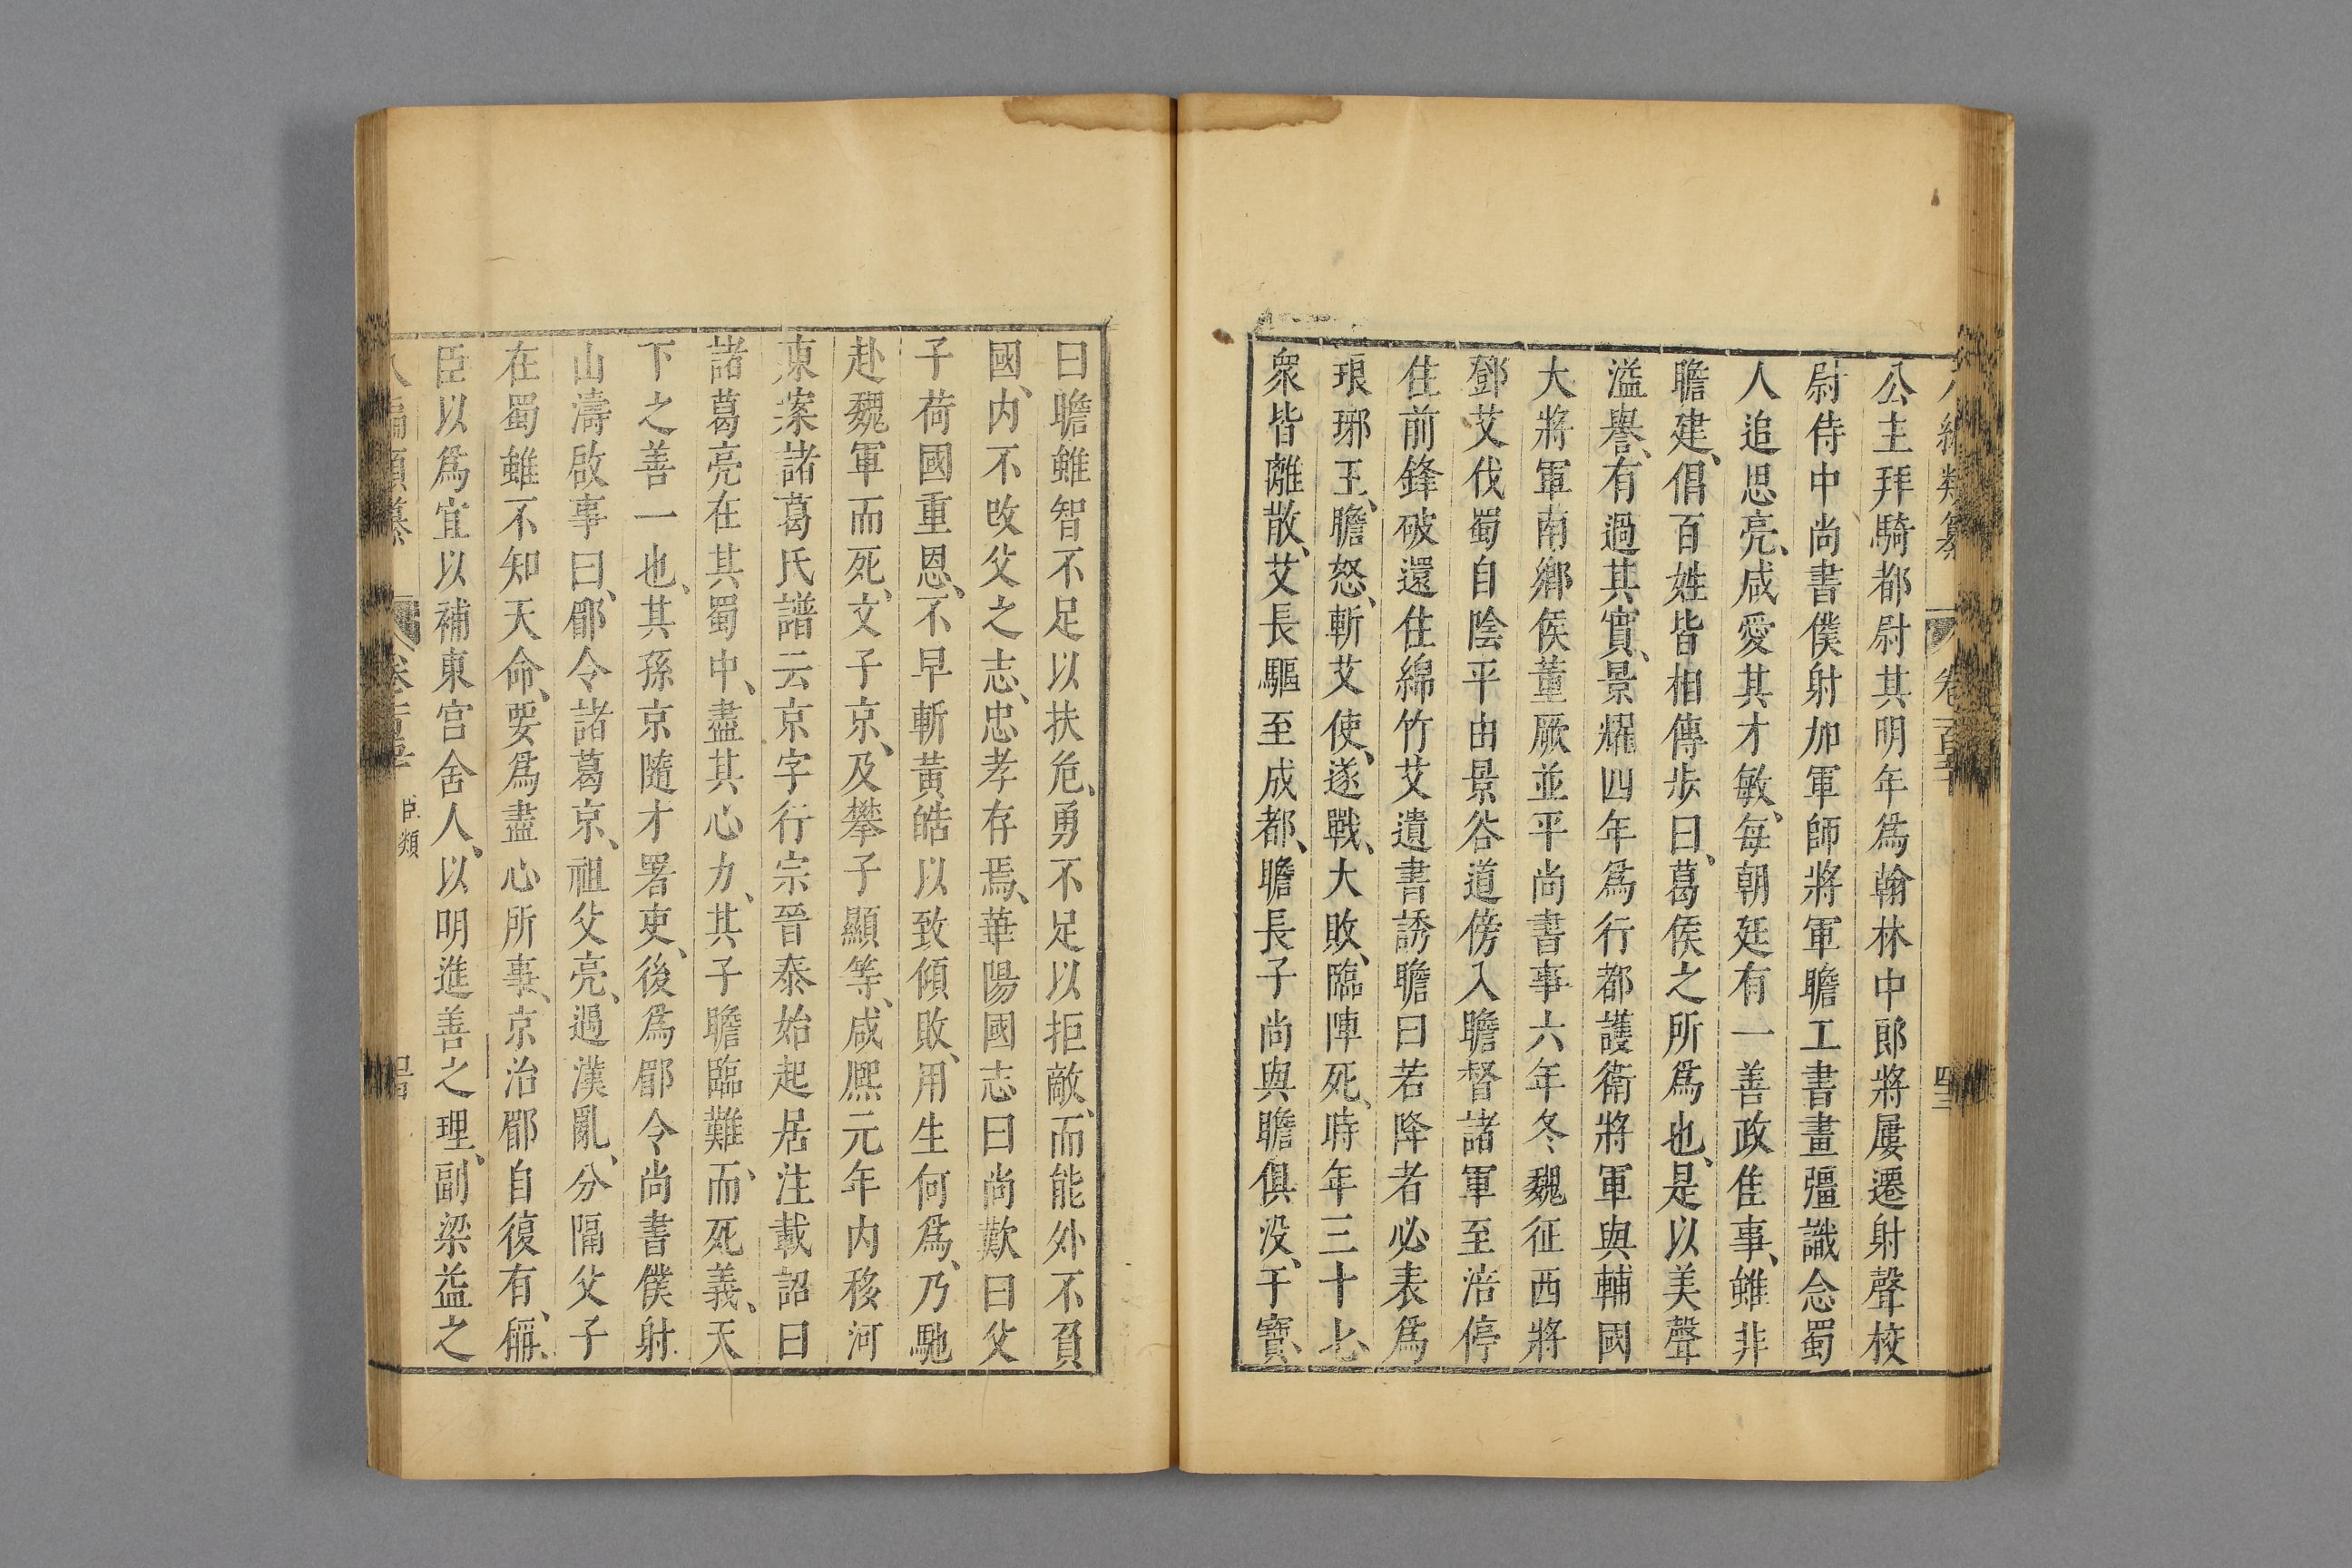 公主拜騎都尉其明年爲翰林中郎將屢遷射聲校
尉侍中尚書僕射加軍師將軍瞻工書畫彊識念蜀
人追思亮、咸愛其才敏、每朝廷有一善政佳事、雖非
瞻建、倡百姓皆相傳步曰、葛侯之所爲也、是以美聲
溢譽、有過其實、景耀四年爲行都護衛將軍與輔國
大將軍南鄉侯董厥並平尚書事六年冬魏征西將
鄧艾伐蜀自陰平由景谷道傍入瞻督諸軍至涪停
住前鋒破還住綿竹艾遺書誘瞻曰若降者必表爲
琅琊王、瞻怒、斬艾使、遂戰、大敗、臨陣死、時年三十七、
衆皆離散、艾長驅至成都、瞻長子尚與瞻俱没、干寶、
曰瞻雖智不足以扶危、勇不足以拒敵、而能外不負
國、内不改父之志、忠孝存焉、華陽國志曰尚歎曰父
子荷國重恩、不早斬黃皓以致傾敗、用生何爲、乃馳
赴魏軍而死、文子京、及攀子顯等、咸熈元年内移河
東案諸葛氏譜云京字行宗晉泰始起居注載詔曰
諸葛亮在其蜀中、盡其心力、其子瞻臨難、而死義、天
下之善一也、其孫京隨才署吏、後爲郿令尚書僕射
山濤啟事曰、郿令諸葛京、祖父亮、過漢亂、分隔父子
在蜀雖不知天命、要爲盡心所事、京治郿自復有、稱、
臣以爲宜以補東宮舍人、以明進善之理、副梁益之
臣類